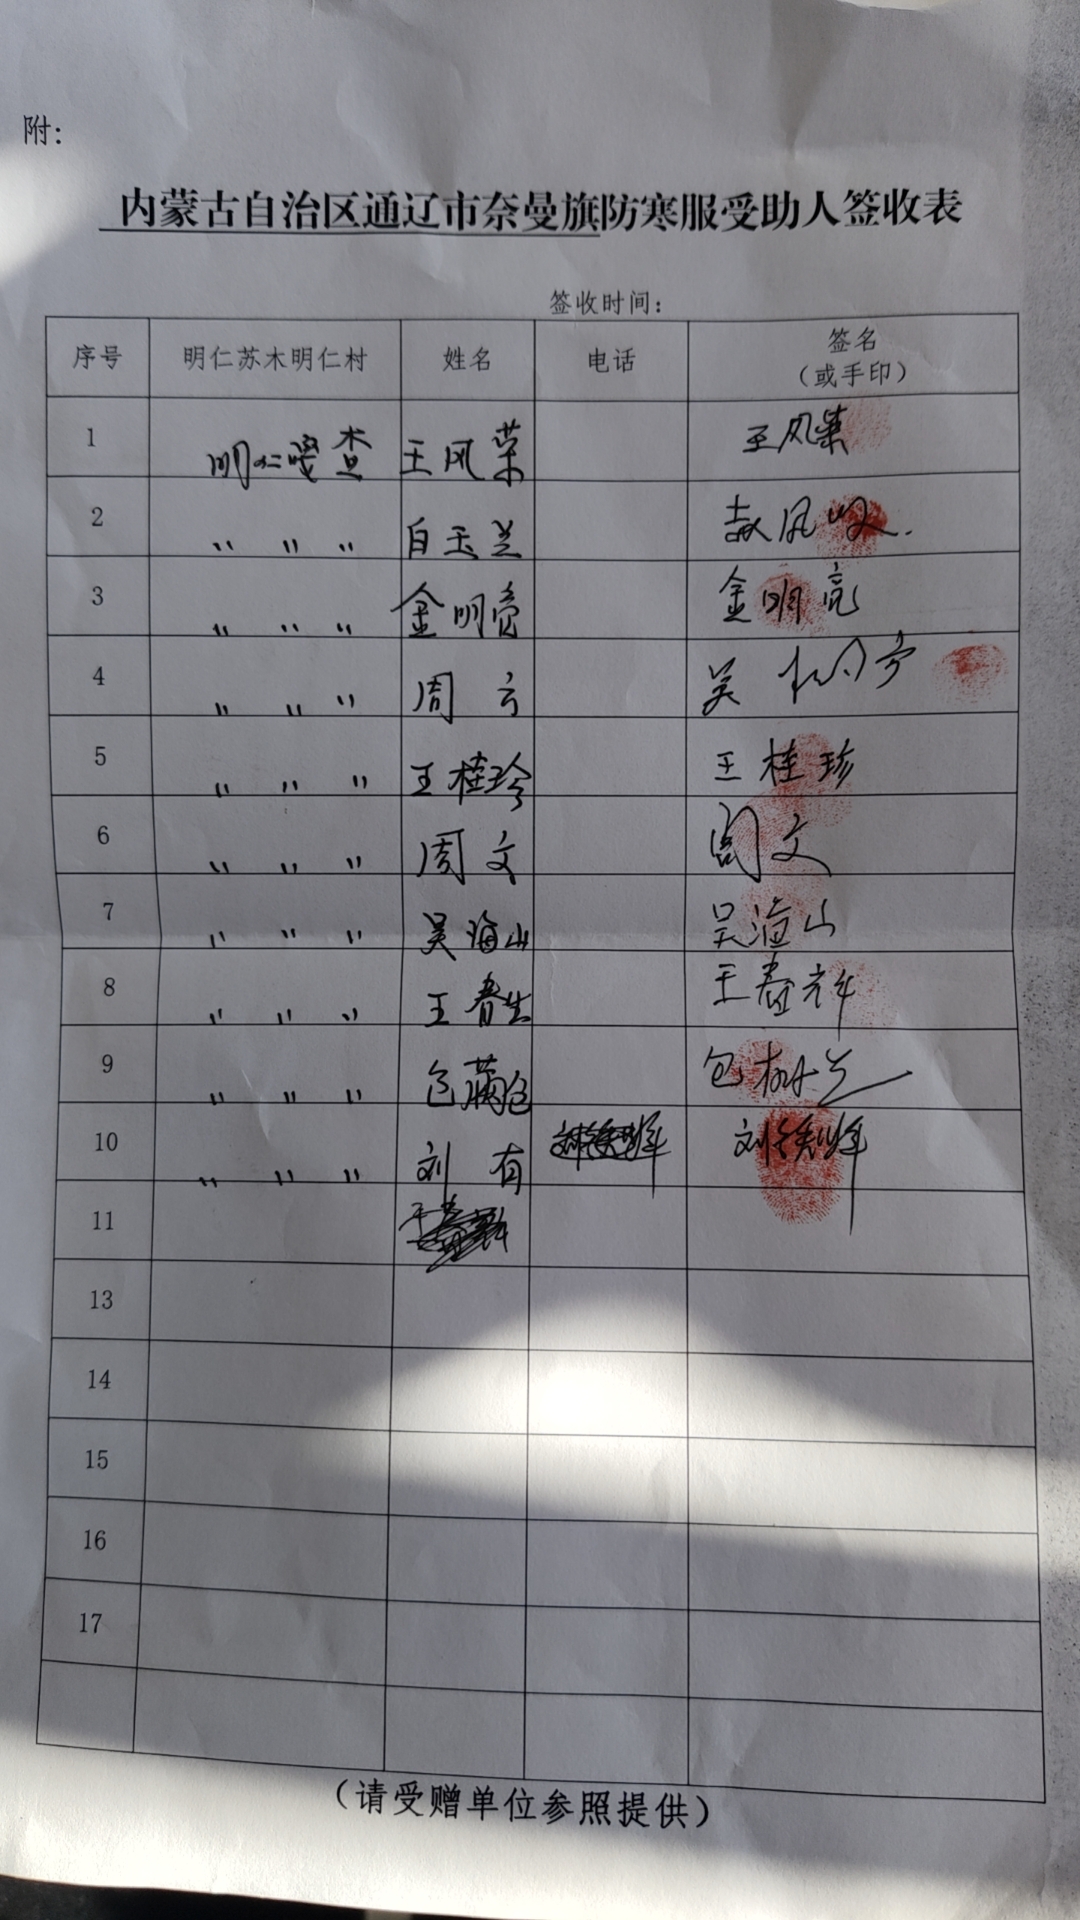 附：
内蒙古自治区通辽市奈曼旗防寒服受助人签收表
签收时间：
序号 明仁苏木明仁村 姓名 电话 签名（或手印）
1 明仁嘎查 王凤荣 王凤荣
2 〃 〃 〃 白玉兰 赵凤
3 〃 〃 〃 金明亮 金明亮
4 〃 〃 〃 周方 吴
5 〃 〃 〃 王桂珍 王桂珍
6 〃 〃 〃 周文 周文
7 〃 〃 〃 吴海山 吴海山
8 〃 〃 〃 王春生 王春祥
9 〃 〃 〃 包满仓 包树兰
10 〃 〃 〃 刘有 刘
11
13
14
15
16
17
（请受赠单位参照提供）